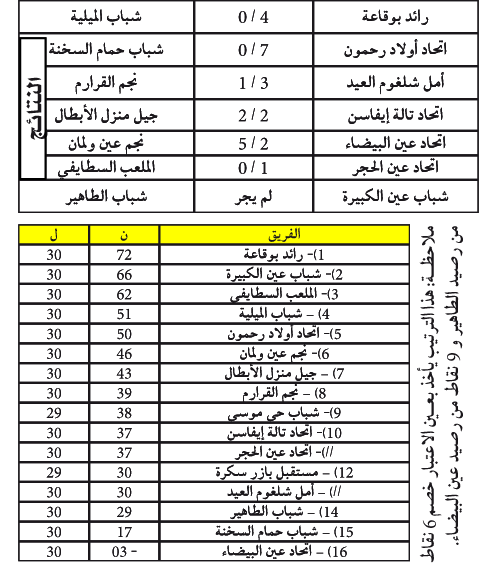 رائد بوقاعة 4 / 0 شباب الميلية
اتحاد أولاد رحمون 7 / 0 شباب حمام السخنة
أمل شلغوم العيد 3 / 1 نجم القرارم
اتحاد تالة إيفاسن 2 / 2 جيل منزل الأبطال
اتحاد عين البيضاء 2 / 5 نجم عين ولمان
اتحاد عين الحجر 1 / 0 الملعب السطايفي
شباب عين الكبيرة لم يجر شباب الطاهير
النتائج
الفريق ن ل
1)- رائد بوقاعة 72 30
2)- شباب عين الكبيرة 66 30
3)- الملعب السطايفي 62 30
4) – شباب الميلية 51 30
5)- اتحاد أولاد رحمون 50 30
6)- نجم عين ولمان 46 30
7) – جيل منزل الأبطال 43 30
8) – نجم القرارم 39 30
9)- شباب حي موسى 38 29
10)- اتحاد تالة إيفاسن 37 30
//)- اتحاد عين الحجر 37 30
12) – مستقبل بازر سكرة 30 29
//) – أمل شلغوم العيد 30 30
14) – شباب الطاهير 29 30
15) – شباب حمام السخنة 17 30
16) – اتحاد عين البيضاء 03 – 30
ملاحظة: هذا الترتيب يأخذ بعين الاعتبار خصم 6 نقاط
من رصيد الطاهير و 9 نقاط من رصيد عين البيضاء.